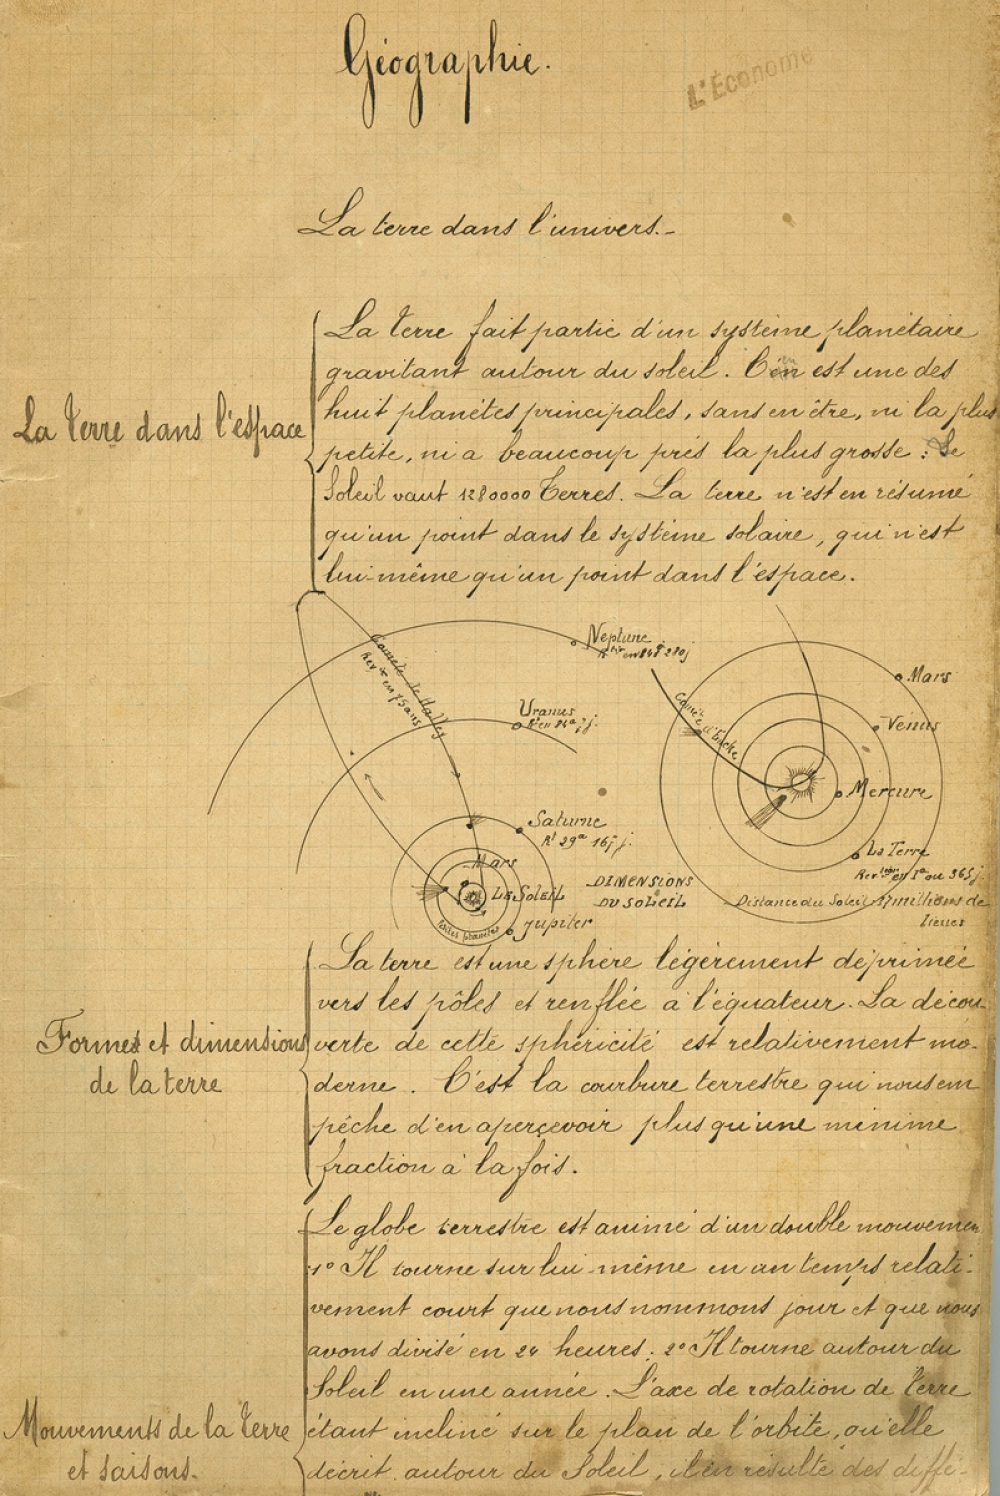 Géographie.
L'Économe
La terre dans l'univers.-
La terre dans l'espace
La Terre fait partie d'un système planétaire
gravitant autour du soleil. C'en est une des
huit planètes principales, sans en être, ni la plus
petite, ni a beaucoup près la plus grosse : Le
Soleil vaut 1280000 Terres. La terre n'est en résumé
qu'un point dans le système solaire, qui n'est
lui-même qu'un point dans l'espace.
Comète de Halley
Rev en 75 ans
Neptune
Uranus
Saturne
Rt 29a 167 j.
Mars
Le Soleil
Petites planètes
Jupiter
DIMENSIONS
DU SOLEIL
Comète d'Encke
Mars
Vénus
Mercure
La Terre
Rev.tion en 1a ou 365 j
Distance du Soleil 37 millions de
lieues
Formes et dimensions
de la terre
La terre est une sphère légèrement déprimée
vers les pôles et renflée à l'équateur. La décou-
verte de cette sphéricité est relativement mo-
derne. C'est la courbure terrestre qui nous em
pêche d'en apercevoir plus qu'une minime
fraction à la fois.
Mouvements de la Terre
et saisons.
Le globe terrestre est animé d'un double mouvemen
1° Il tourne sur lui-même en un temps relati-
vement court que nous nommons jour et que nous
avons divisé en 24 heures; 2° Il tourne autour du
Soleil en une année. L'axe de rotation de Terre
étant incliné sur le plan de l'orbite, qu'elle
décrit autour du Soleil, il en résulte des diffé-